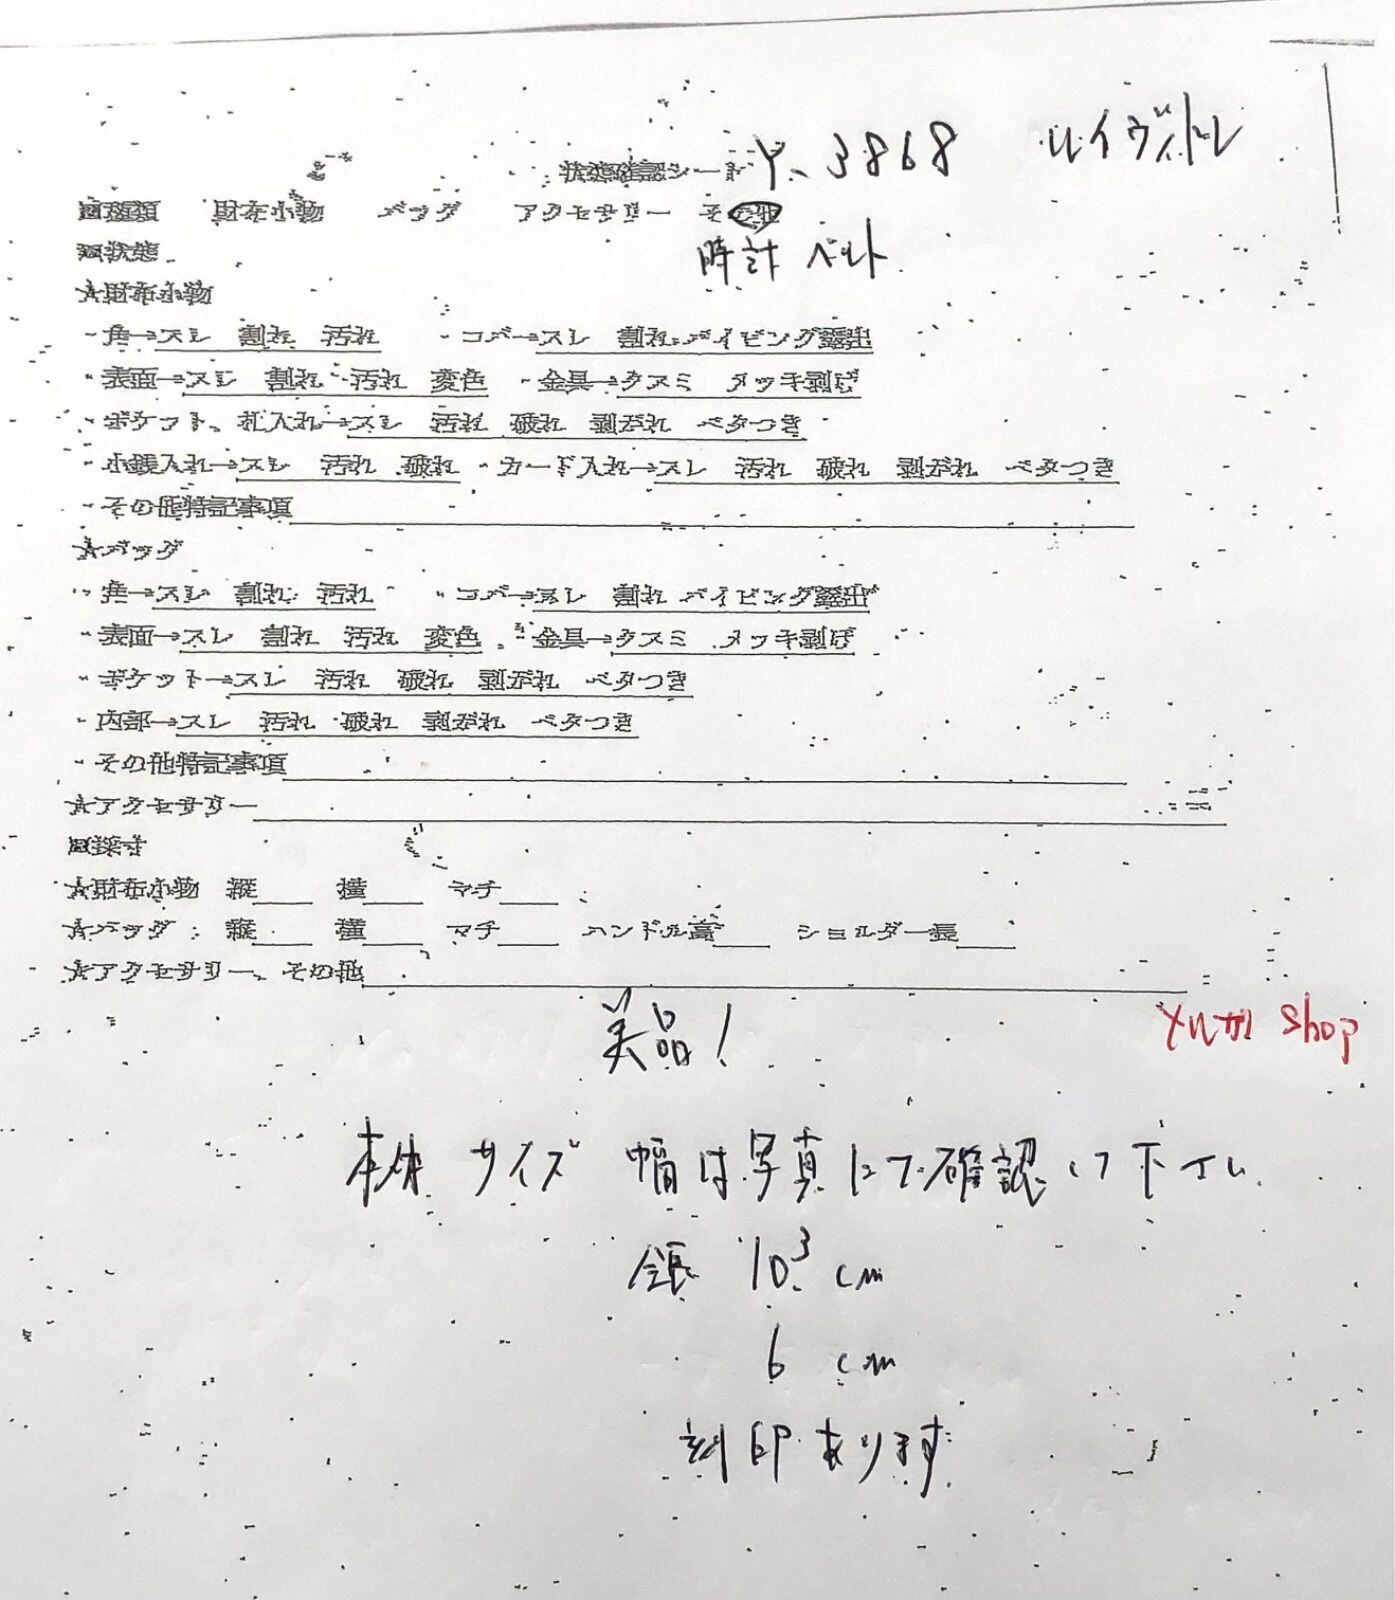 状態確認シート Y、3868 ルイヴィトン
■種類 財布小物 バッグ アクセサリー その他
■状態 時計 ベルト
★財布小物
・角→スレ 割れ 汚れ ・コバ→スレ 割れ パイピング露出
・表面→スレ 割れ 汚れ 変色 ・金具→クスミ メッキ剥げ
・ポケット、札入れ→スレ 汚れ 破れ 剥がれ ベタつき
・小銭入れ→スレ 汚れ 破れ ・カード入れ→スレ 汚れ 破れ 剥がれ ベタつき
・その他特記事項
★バッグ
・角→スレ 割れ 汚れ ・コバ→スレ 割れ パイピング露出
・表面→スレ 割れ 汚れ 変色 ・金具→クスミ メッキ剥げ
・ポケット→スレ 汚れ 破れ 剥がれ ベタつき
・内部→スレ 汚れ 破れ 剥がれ ベタつき
・その他特記事項
★アクセサリー
■採寸
★財布小物 縦 横 マチ
★バッグ： 縦 横 マチ ハンドル高 ショルダー長
★アクセサリー、その他
美品!
メルカリ Shop
本体 サイズ 幅は写真にて確認して下さい
全長 10³ cm
6 cm
刻印あります